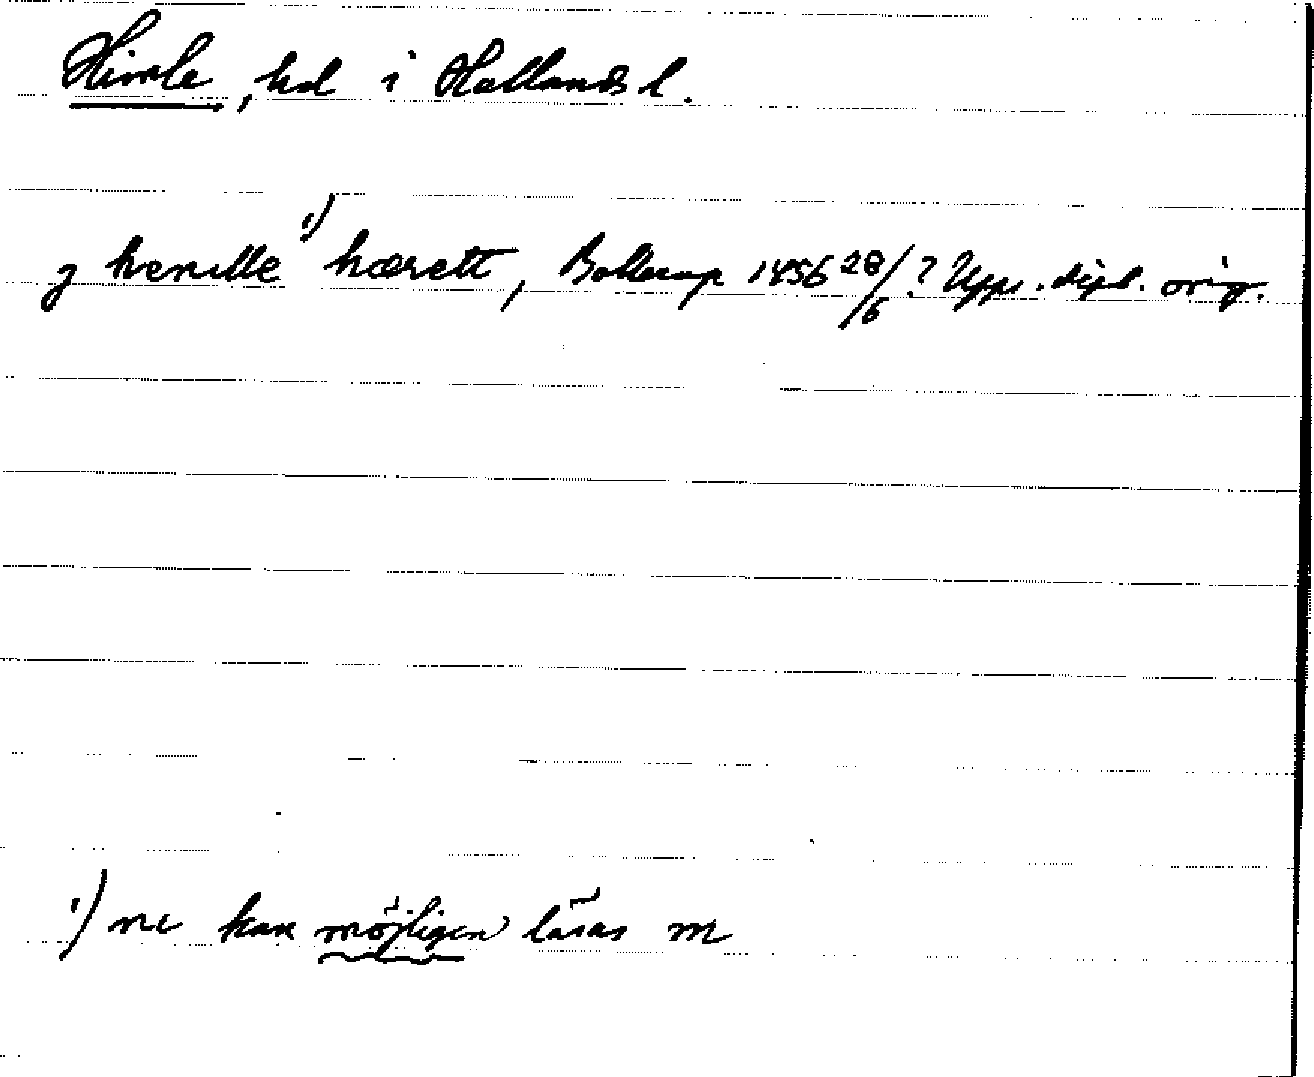 Himle, hd i Hallands l.
j henille ¹) hærett, Bollerup 1456 28/6 ? Upps. dipl. orig.
¹) ne kan möjligen läsas m